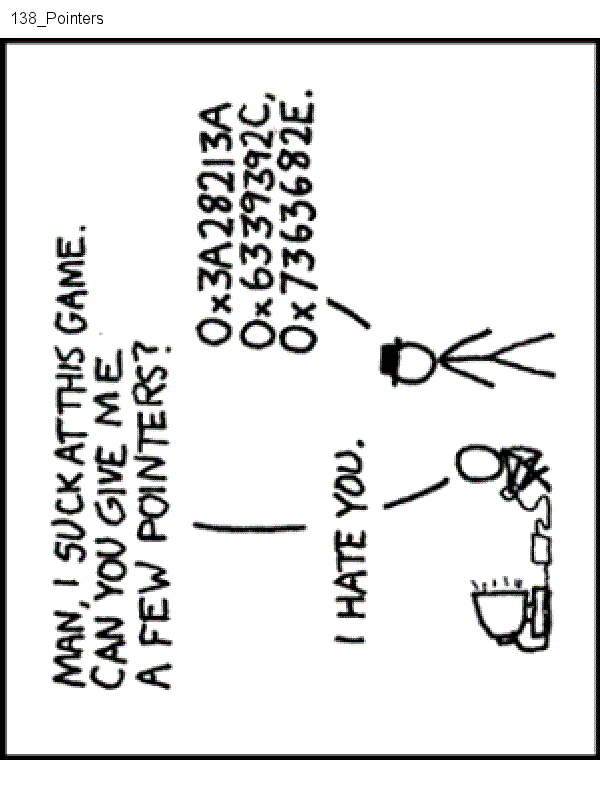 138_Pointers
MAN, I SUCK AT THIS GAME.
CAN YOU GIVE ME
A FEW POINTERS?
0x3A28213A
0x6339392C,
0x7363682E.
I HATE YOU.